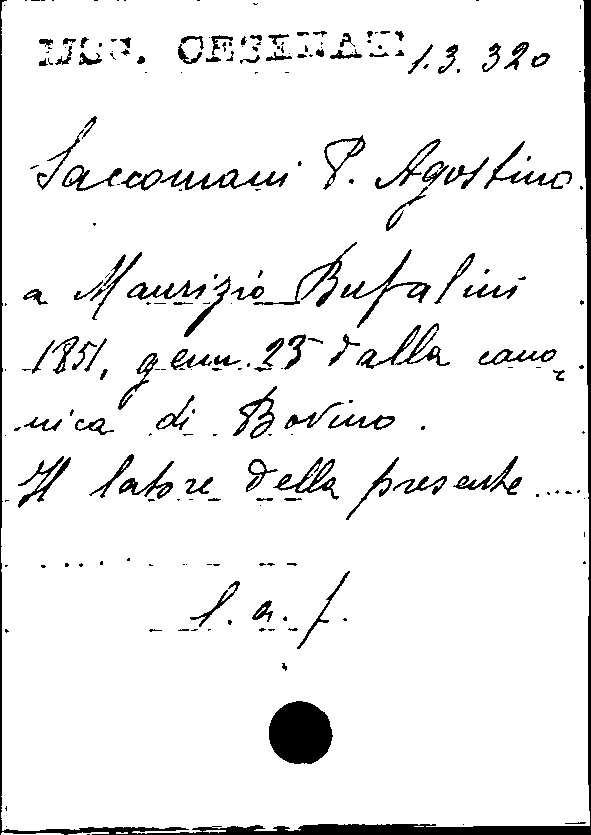 MSS. CESENATI 1.3.320
Saccomani P. Agostino.
a Maurizio Bufalini
1851, genn. 25 dalla cano=
nica di Bovino.
Il latore della presente ....
l. a. f.